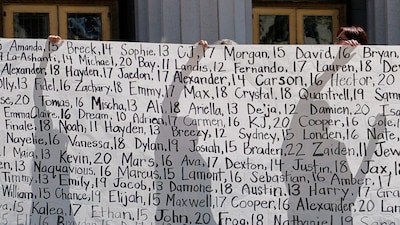 Amanda, 15 Breck, 14 Sophie, 13 CJ Morgan, 15 David, 16 Bryan,
La-Ashanti, 14 Michael, 20 Bay, 11 Landis, 12 Fernando, 17 Lauren, 18
Alexander, 18 Hayden, 17 Jaedon, 17 Alexander, 14 Carson, 16 Hector, 20
Fidel, 16 Zachary, 18 Emmy, 17 Max, 18 Crystal, 18 Quantrell, 19
20 Tomas, 16 Mischa, 13 Ali 18 Ariella, 13 De'ja, 12 Damien, 20
EmmaClaire, 16 Dream, 10 Adrien, 14 Carmen, 16 KJ, 20 Cooper, 16
Finale, 18 Noah, 11 Hayden, 13 Breezy, 12 Sydney, 15 London, 16 Nate,
Nayelie, 16 Vanessa, 18 Dylan, 19 Josiah, 15 Braden, 22 Zaiden, 11
11 Maia, 13 Kevin, 20 Mars, 16 Ava, 17 Dexter, 14 Justin, 18 Jax,
Naquavious, 16 Marcus, 15 Lamont, 16 Sebastian, 16 Amber, 17
Timmy, 13 Emily, 19 Jacob, 13 Damone, 18 Austin, 13 Harry, 17
William, 15 Chance, 14 Elijah, 15 Maxwell, 17 Cooper, 16 Alexander,
15 Kalea, 17 Ethan, 15 John, 20 Frog, 18 Nathaniel,